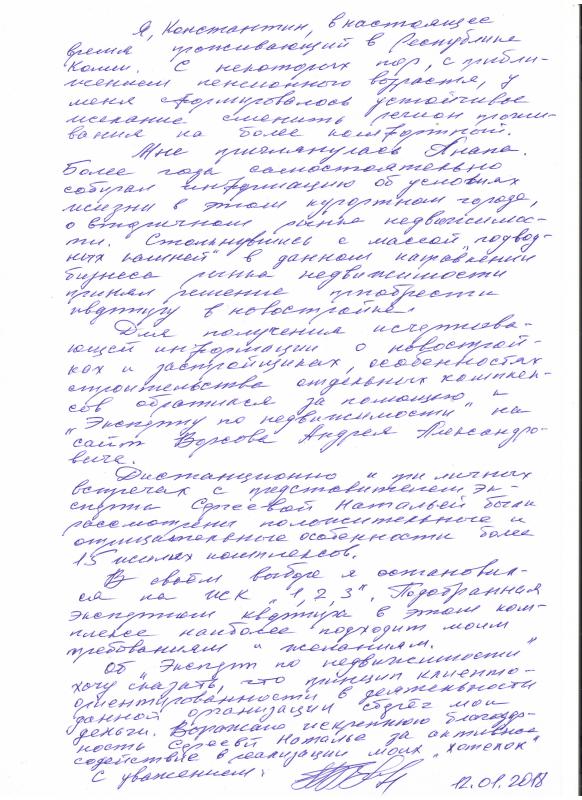 Я, Константин, в настоящее
время проживающий в Республике
Коми. С некоторых пор, с прибли-
жением пенсионного возраста, у
меня сформировалось устойчивое
желание сменить регион прожи-
вания на более комфортный.
Мне приглянулась Анапа.
Более года самостоятельно
собирал информацию об условиях
жизни в этом курортном городе,
о вторичном рынке недвижимос-
ти. Столкнувшись с массой "подвод-
ных камней" в данном направлении
бизнеса рынка недвижимости
принял решение приобрести
квартиру в новостройке.
Для получения исчерпыва-
ющей информации о новострой-
ках и застройщиках, особенностях
строительства отдельных комплек-
сов обратился за помощью к
"Эксперту по недвижимости" на
сайт Андрея Александро-
вича.
Дистанционно и при личных
встречах с представителем Эк-
сперта Сергеевой Натальей были
рассмотрены положительные и
отрицательные особенности более
15 жилых комплексов.
В своём выборе я остановил-
ся на ЖК "1, 2, 3". Подобранная
экспертом квартира в этом ком-
плексе наиболее подходит моим
требованиям и желаниям.
Об "Эксперт по недвижимости"
хочу сказать, что принцип клиенто-
ориентированности в деятельности
данной организации сберёг мои
деньги. Выражаю искреннюю благодар-
ность Сергеевой Наталье за активное
содействие в реализации моих "хотелок"
С уважением:
12.01.2018